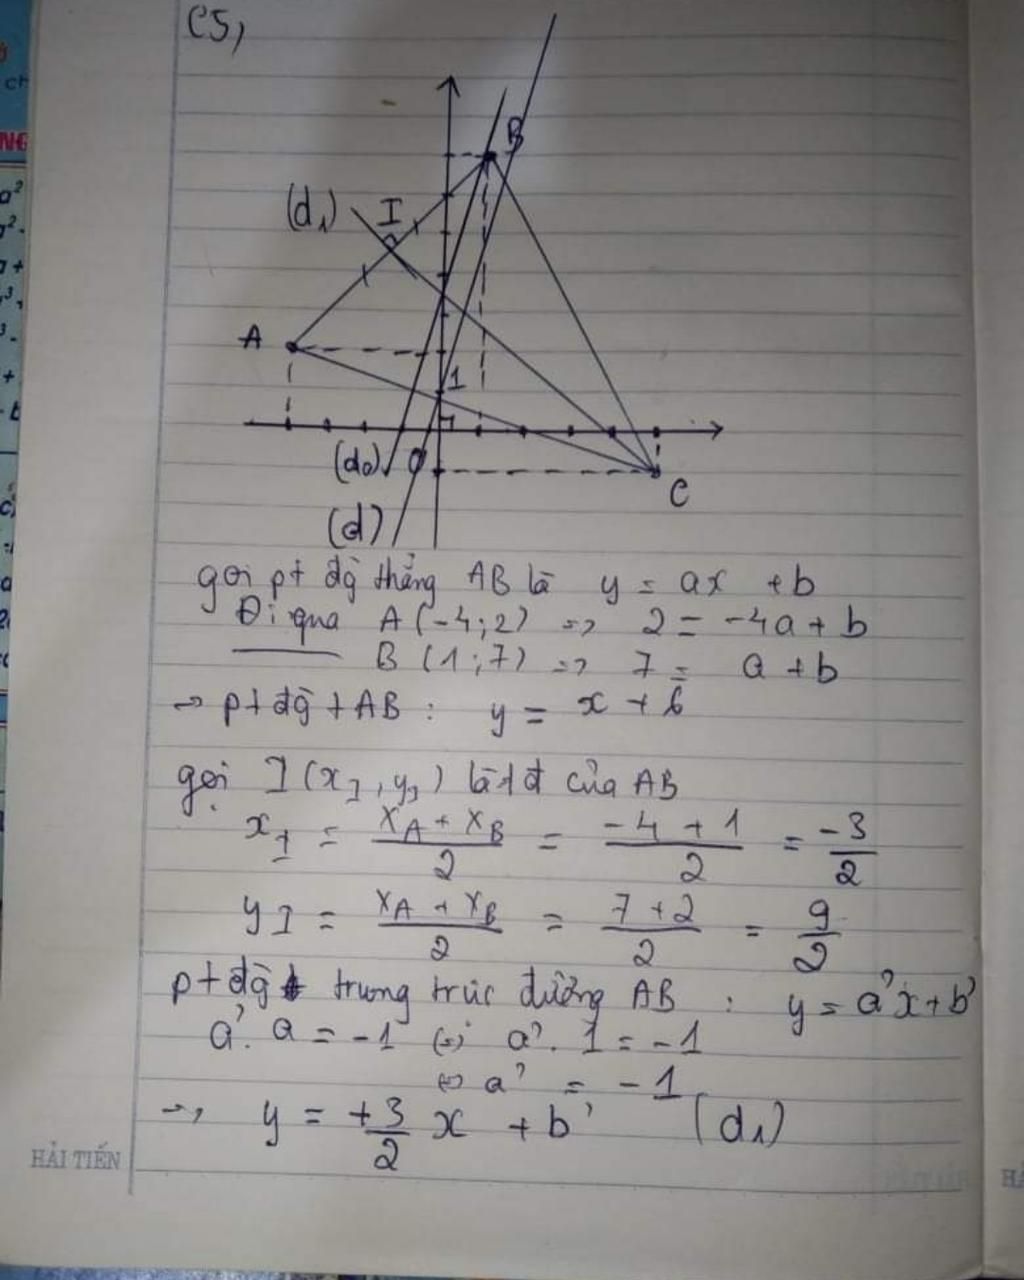 C5,
B
(d₁) I
A
1
(d₀) O
C
(d)
gọi pt đg thẳng AB là y = ax + b
Đi qua A (-4; 2) => 2 = -4a + b
B (1; 7) => 7 = a + b
→ pt đg t AB : y = x + 6
gọi I (x_I, y_I) là t đ của AB
x_I = (x_A + x_B)/2 = (-4 + 1)/2 = -3/2
y_I = (x_A + x_B)/2 = (7 + 2)/2 = 9/2
pt đg trung trực đường AB : y = a'x + b'
a'. a = -1 (=) a'. 1 = -1
(=) a' = -1
→ y = +3/2 x + b' (d₁)
HẢI TIẾN